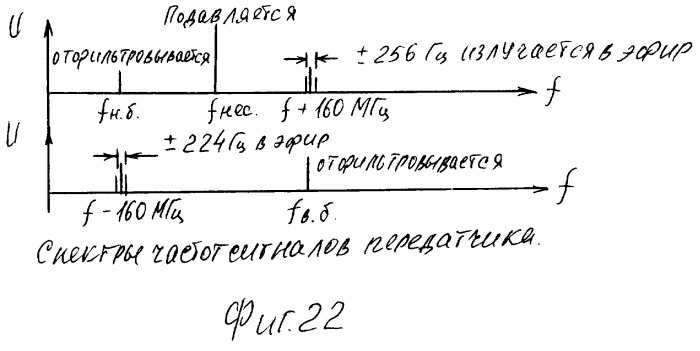 U
Подавляется
отфильтровывается
± 256 Гц излучается в эфир
fн.б.
fнес.
f + 160 МГц
f
U
± 224 Гц в эфир
отфильтровывается
f - 160 МГц
fв.б.
f
Спектры частот сигналов передатчика.
Фиг. 22